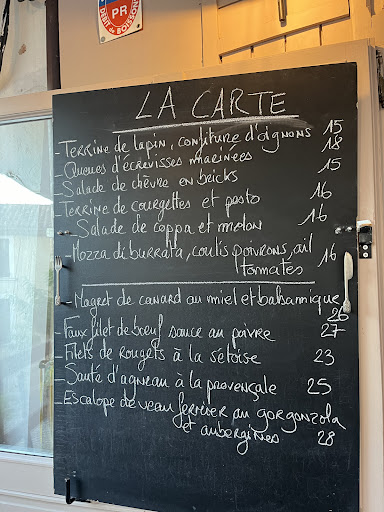 PR
DÉBIT de BOISSONS
LA CARTE
- Terrine de lapin, confiture d'oignons 15
- Queues d'écrevisses marinées 18
- Salade de chèvre en bricks 15
- Terrine de courgettes et pesto 16
- Salade de coppa et melon 16
- Mozza di burrata, coulis poivrons, ail 16
tomates
- Magret de canard au miel et balsamique
26
- Faux filet de bœuf sauce au poivre 27
- Filets de rougets à la sétoise 23
- Sauté d'agneau à la provençale 25
- Escalope de veau fermier au gorgonzola
et aubergines 28